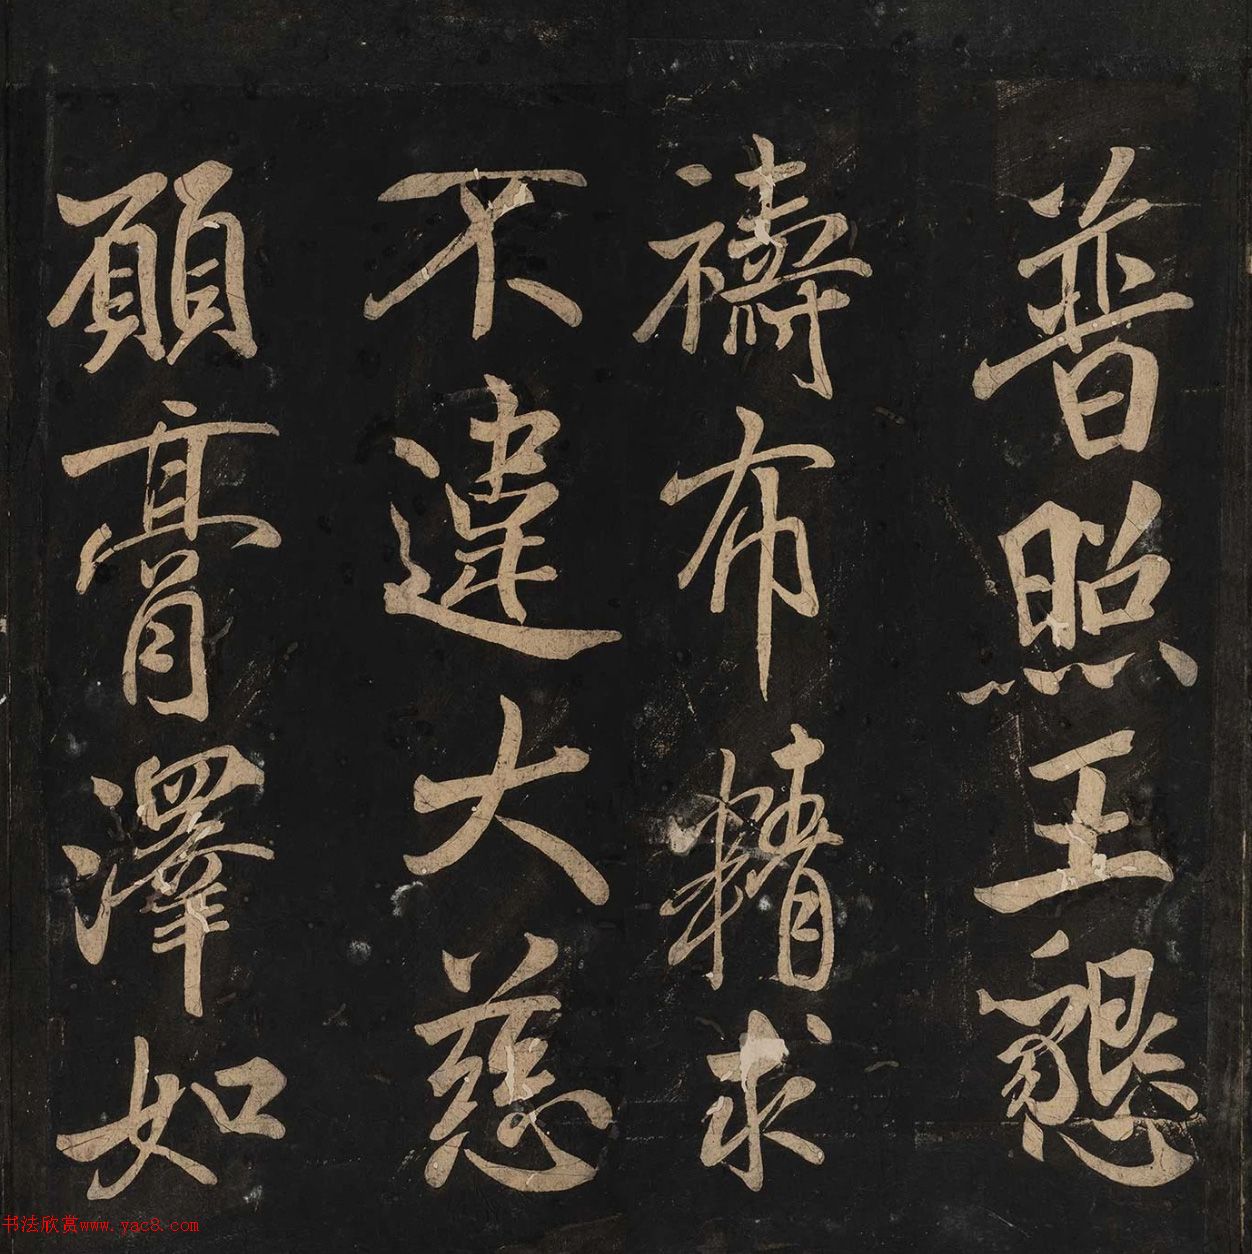 普照王懇
禱布精求
不違大慈
願膏澤如
书法欣赏www.yac8.com